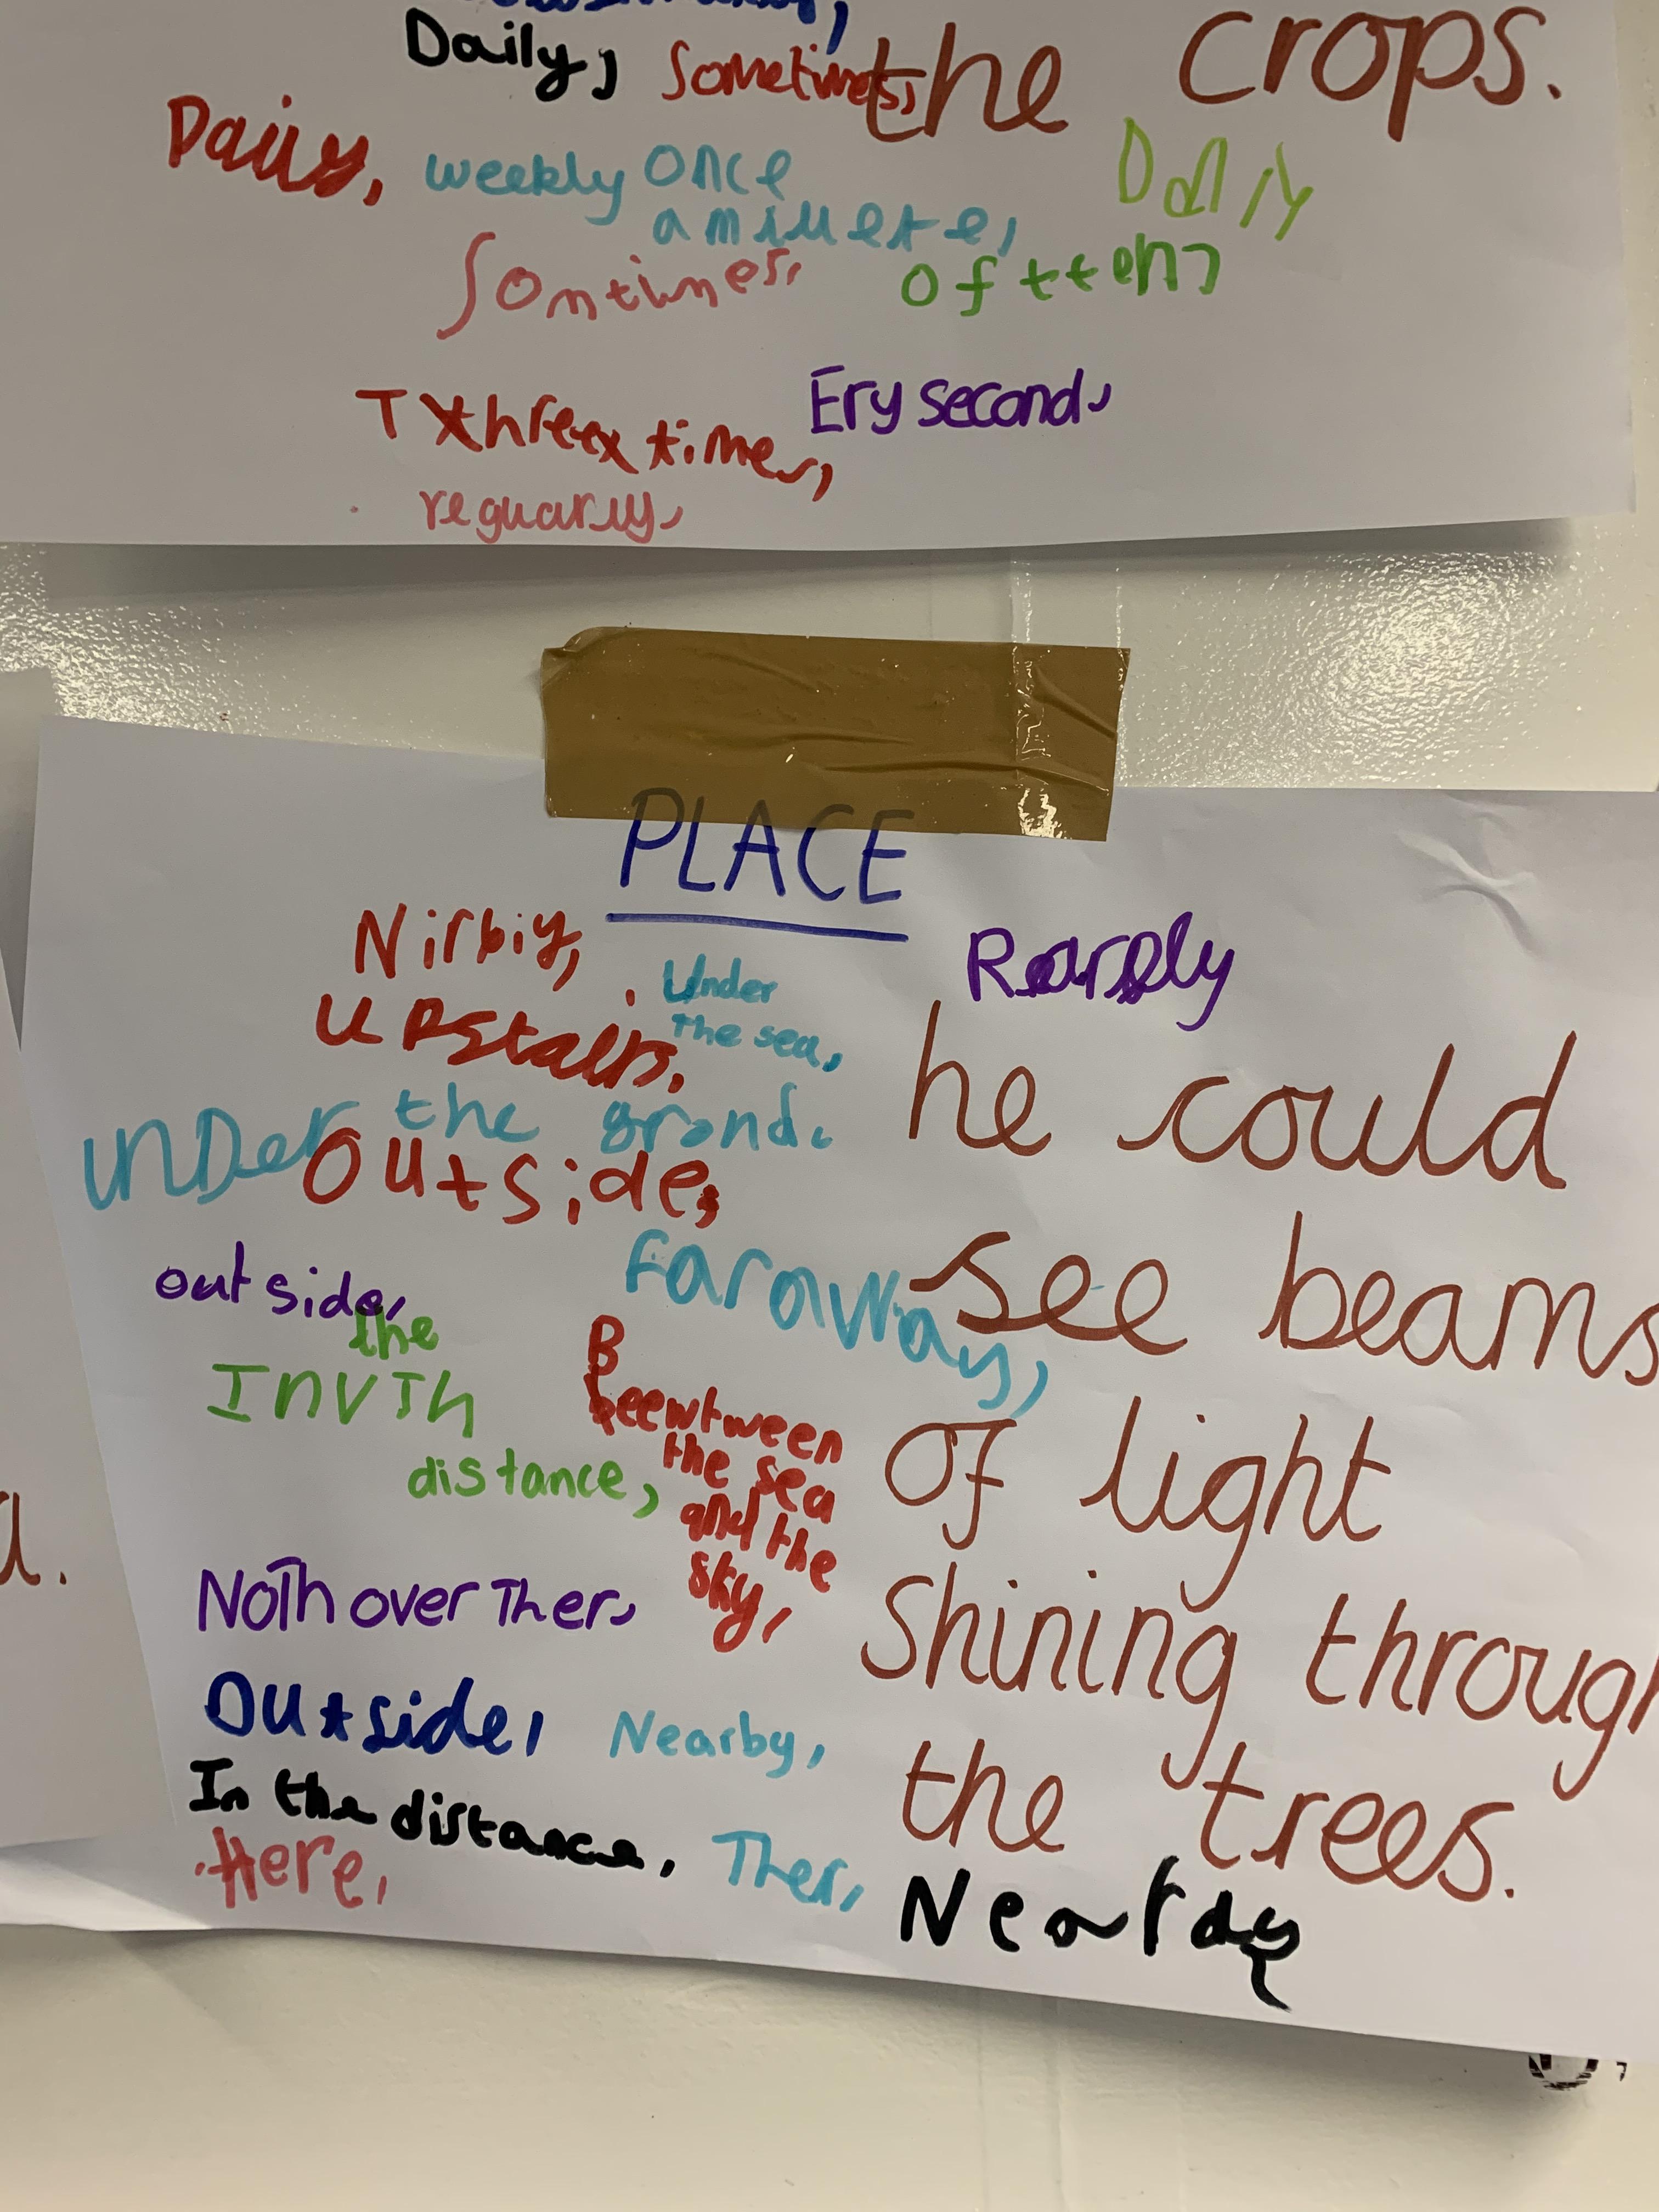 Daily, Sometimes,
the crops.
Daily, weekly once
Daily
Somtimes,
oftten,
Ery second,
three times,
reguarly,
PLACE
Nirbiy,
Under
the sea,
Rarely
upstairs,
he could
unDer the grond,
outside,
see beams
Faraway,
outside,
the
distance,
B
between
the sea
and the
sky,
of light
Noth over Ther,
shining through
Outside, Nearby,
the trees.
In the distance, Ther,
Here,